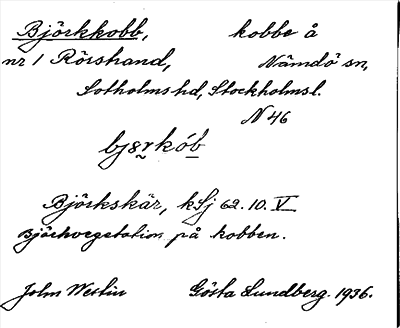 Björkkobb, kobbe å
nr 1 Rörstrand, Nämdö sn,
Sotholms hd, Stockholms l.
N 46
bj8rkób
Björkskär, kSj 62. 10. V
Björkvegetation på kobben.
John Westin Gösta Lundberg. 1936.